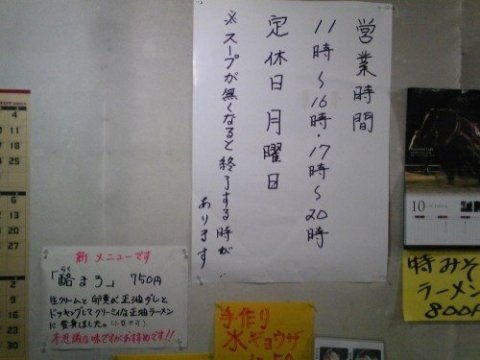 営業時間
11時〜16時・17時〜20時
定休日 月曜日
※スープが無くなると終了する時が
あります
新メニューです
「酪まろ」 750円
らく
生クリームと卵黄が正油ダレと
ドッキングしてクリーミィな正油ラーメン
に変身しました。
不思議な味ですがおすすめです!!
手作り
水ギョウザ
特みそ
ラーメン
800円
10
4
11
18
25
2
9
16
23
30